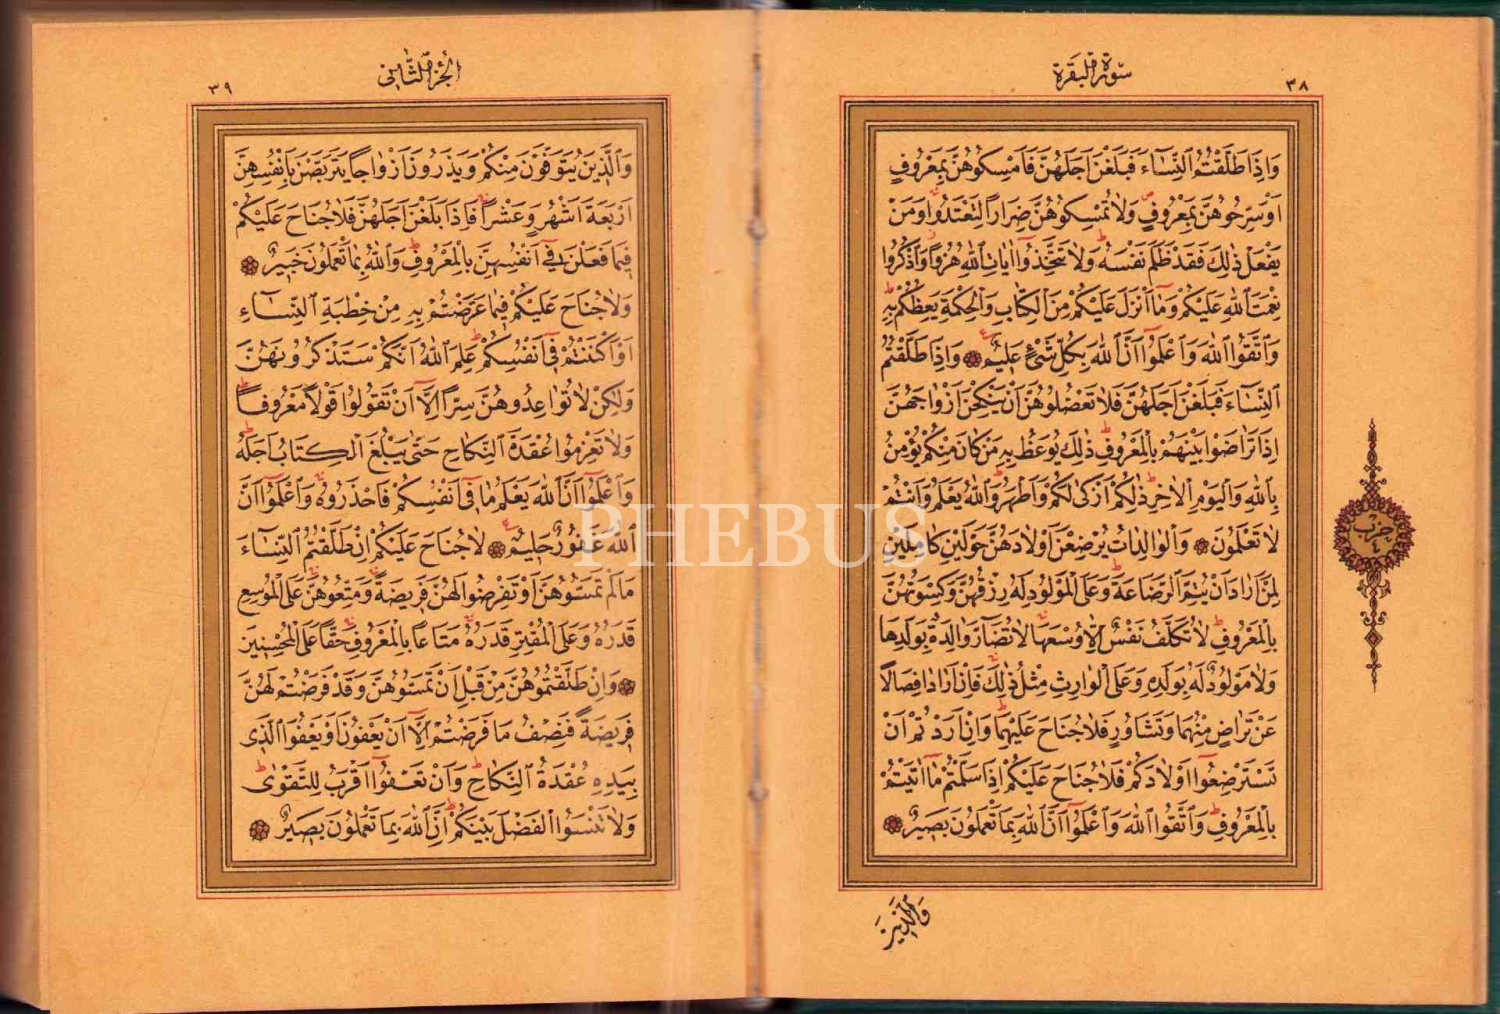 سورة البقرة
٣٨
وَاِذَا طَلَّقْتُمُ النِّسَٓاءَ فَبَلَغْنَ اَجَلَهُنَّ فَاَمْسِكُوهُنَّ بِمَعْرُوفٍ
اَوْ سَرِّحُوهُنَّ بِمَعْرُوفٍ وَلَا تُمْسِكُوهُنَّ ضِرَاراً لِتَعْتَدُوا وَمَنْ
يَفْعَلْ ذٰلِكَ فَقَدْ ظَلَمَ نَفْسَهُ وَلَا تَتَّخِذُٓوا اٰيَاتِ اللّٰهِ هُزُواً وَاذْكُرُوا
نِعْمَتَ اللّٰهِ عَلَيْكُمْ وَمَٓا اَنْزَلَ عَلَيْكُمْ مِنَ الْكِتَابِ وَالْحِكْمَةِ يَعِظُكُمْ بِهِ
وَاتَّقُوا اللّٰهَ وَاعْلَمُٓوا اَنَّ اللّٰهَ بِكُلِّ شَيْءٍ عَلِيمٌ وَاِذَا طَلَّقْتُمُ
النِّسَٓاءَ فَبَلَغْنَ اَجَلَهُنَّ فَلَا تَعْضُلُوهُنَّ اَنْ يَنْكِحْنَ اَزْوَاجَهُنَّ
اِذَا تَرَاضَوْا بَيْنَهُمْ بِالْمَعْرُوفِ ذٰلِكَ يُوعَظُ بِهِ مَنْ كَانَ مِنْكُمْ يُؤْمِنُ
بِاللّٰهِ وَالْيَوْمِ الْاٰخِرِ ذٰلِكُمْ اَزْكٰى لَكُمْ وَاَطْهَرُ وَاللّٰهُ يَعْلَمُ وَاَنْتُمْ
لَا تَعْلَمُونَ وَالْوَالِدَاتُ يُرْضِعْنَ اَوْلَادَهُنَّ حَوْلَيْنِ كَامِلَيْنِ
لِمَنْ اَرَادَ اَنْ يُتِمَّ الرَّضَاعَةَ وَعَلَى الْمَوْلُودِ لَهُ رِزْقُهُنَّ وَكِسْوَتُهُنَّ
بِالْمَعْرُوفِ لَا تُكَلَّفُ نَفْسٌ اِلَّا وُسْعَهَا لَا تُضَٓارَّ وَالِدَةٌ بِوَلَدِهَا
وَلَا مَوْلُودٌ لَهُ بِوَلَدِهِ وَعَلَى الْوَارِثِ مِثْلُ ذٰلِكَ فَاِنْ اَرَادَا فِصَالاً
عَنْ تَرَاضٍ مِنْهُمَا وَتَشَاوُرٍ فَلَا جُنَاحَ عَلَيْهِمَا وَاِنْ اَرَدْتُمْ اَنْ
تَسْتَرْضِعُٓوا اَوْلَادَكُمْ فَلَا جُنَاحَ عَلَيْكُمْ اِذَا سَلَّمْتُمْ مَٓا اٰتَيْتُمْ
بِالْمَعْرُوفِ وَاتَّقُوا اللّٰهَ وَاعْلَمُٓوا اَنَّ اللّٰهَ بِمَا تَعْمَلُونَ بَصِيرٌ
وَالَّذِينَ
حزب
٤
الجزء الثاني
٣٩
وَالَّذِينَ يُتَوَفَّوْنَ مِنْكُمْ وَيَذَرُونَ اَزْوَاجاً يَتَرَبَّصْنَ بِاَنْفُسِهِنَّ
اَرْبَعَةَ اَشْهُرٍ وَعَشْراً فَاِذَا بَلَغْنَ اَجَلَهُنَّ فَلَا جُنَاحَ عَلَيْكُمْ
فِيمَا فَعَلْنَ فِٓي اَنْفُسِهِنَّ بِالْمَعْرُوفِ وَاللّٰهُ بِمَا تَعْمَلُونَ خَبِيرٌ
وَلَا جُنَاحَ عَلَيْكُمْ فِيمَا عَرَّضْتُمْ بِهِ مِنْ خِطْبَةِ النِّسَٓاءِ
اَوْ اَكْنَنْتُمْ فِٓي اَنْفُسِكُمْ عَلِمَ اللّٰهُ اَنَّكُمْ سَتَذْكُرُونَهُنَّ
وَلٰكِنْ لَا تُوَاعِدُوهُنَّ سِرّاً اِلَّٓا اَنْ تَقُولُوا قَوْلاً مَعْرُوفاً
وَلَا تَعْزِمُوا عُقْدَةَ النِّكَاحِ حَتّٰى يَبْلُغَ الْكِتَابُ اَجَلَهُ
وَاعْلَمُٓوا اَنَّ اللّٰهَ يَعْلَمُ مَا فِٓي اَنْفُسِكُمْ فَاحْذَرُوهُ وَاعْلَمُٓوا اَنَّ
اللّٰهَ غَفُورٌ حَلِيمٌ لَا جُنَاحَ عَلَيْكُمْ اِنْ طَلَّقْتُمُ النِّسَٓاءَ
مَا لَمْ تَمَسُّوهُنَّ اَوْ تَفْرِضُوا لَهُنَّ فَرِيضَةً وَمَتِّعُوهُنَّ عَلَى الْمُوسِعِ
قَدَرُهُ وَعَلَى الْمُقْتِرِ قَدَرُهُ مَتَاعاً بِالْمَعْرُوفِ حَقّاً عَلَى الْمُحْسِنِينَ
وَاِنْ طَلَّقْتُمُوهُنَّ مِنْ قَبْلِ اَنْ تَمَسُّوهُنَّ وَقَدْ فَرَضْتُمْ لَهُنَّ
فَرِيضَةً فَنِصْفُ مَا فَرَضْتُمْ اِلَّٓا اَنْ يَعْفُونَ اَوْ يَعْفُوَا الَّذِي
بِيَدِهِ عُقْدَةُ النِّكَاحِ وَاَنْ تَعْفُٓوا اَقْرَبُ لِلتَّقْوٰى
وَلَا تَنْسَوُا الْفَضْلَ بَيْنَكُمْ اِنَّ اللّٰهَ بِمَا تَعْمَلُونَ بَصِيرٌ
PHEBUS